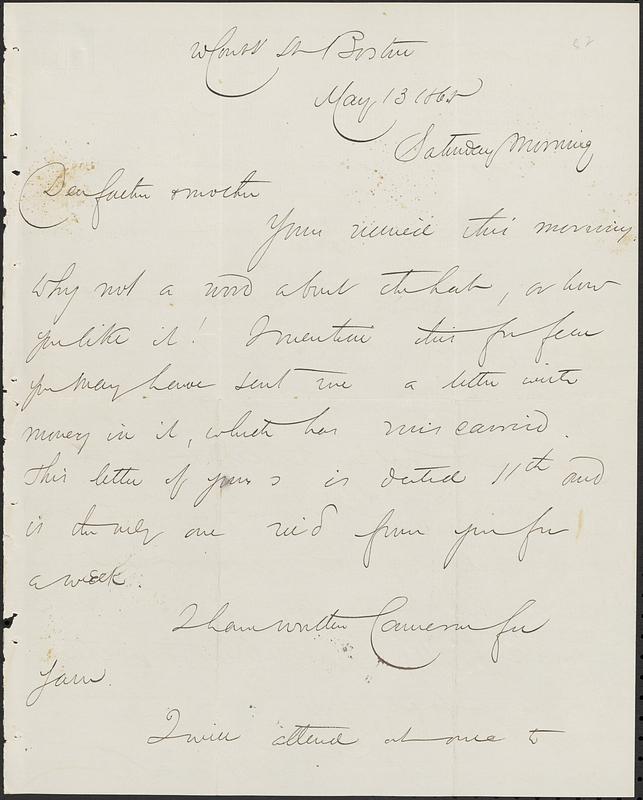 Court St Boston
May 13 1865
Saturday Morning
Dear father & mother
Yours received this morning.
Why not a word about the hat, or how
you like it! I mention this for fear
you may have sent me a letter with
money in it, which has miscarried.
This letter of yours is dated 11th and
is the only one rec'd from you for
a week.
I have written Cameron for
yarn.
I will attend at once to